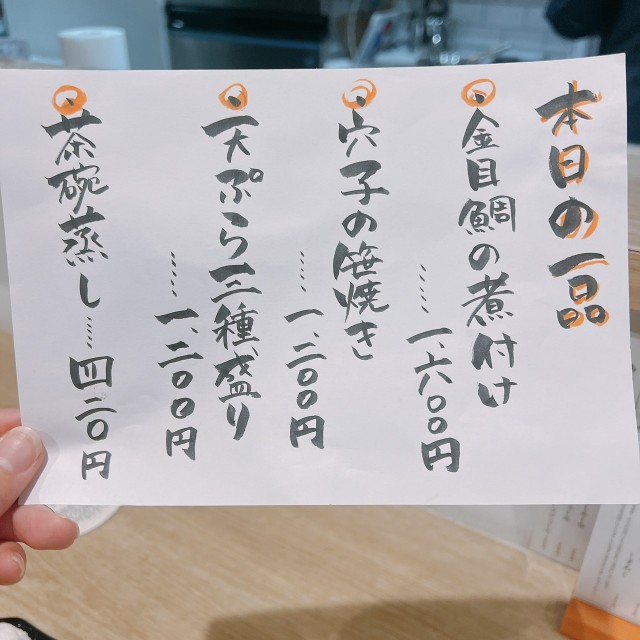 本日の一品
・金目鯛の煮付け
……一、六〇〇円
・穴子の笹焼き
……一、二〇〇円
・天ぷら三種盛り
……一、二〇〇円
・茶碗蒸し……四二〇円